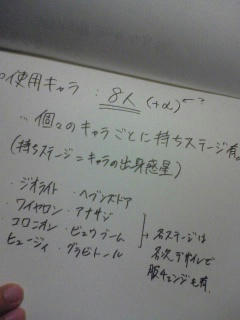 ○使用キャラ：8人 (+α)?
…個々のキャラごとに持ちステージ有。
(持ちステージ＝キャラの出身惑星)
・ジオライト ・ヘブンズドア
・ワイヤロン・アナザン
・コロニオン・ビュウブーム
・ヒュージィ・グラビトール
→各ステージは
各次デザインで
版チェンジも有